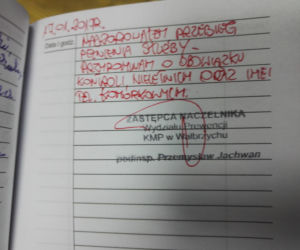 17.01.2017r.
Data i godz.
NADZOROWAŁEM PRZEBIEG
PEŁNIENIA SŁUŻBY -
PRZYPOMNIAŁEM O OBOWIĄZKU
KONTROLI NIELETNICH ORAZ IMEI
TEL. KOMÓRKOWYCH.
ZASTĘPCA NACZELNIKA
Wydziału Prewencji
KMP w Wałbrzychu
podinsp. Przemysław Jachwan